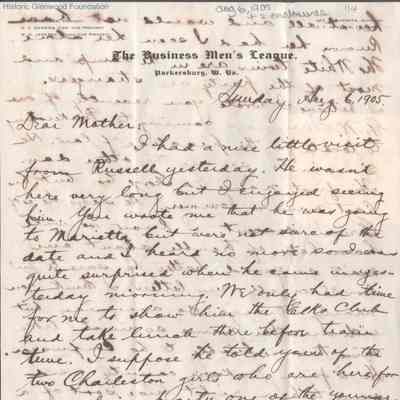 Historic Glenwood Foundation
114
The Business Men's League.
Parkersburg, W. Va.
Sunday, Aug 6, 1905
Dear Mother:
I had a nice little visit
from Russell yesterday. He wasn't
here very long but I enjoyed seeing
him. You wrote me that he was going
to Marietta but were not sure of the
date and I heard no more so I was
quite surprised when he came in yes-
terday morning. We only had time
for me to show him the Elks Club
and take lunch there before train
time. I suppose he told you of the
two Charleston girls who are here for
party one of the young-